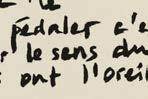 pédaler c'e
le sens du
ont l'orei